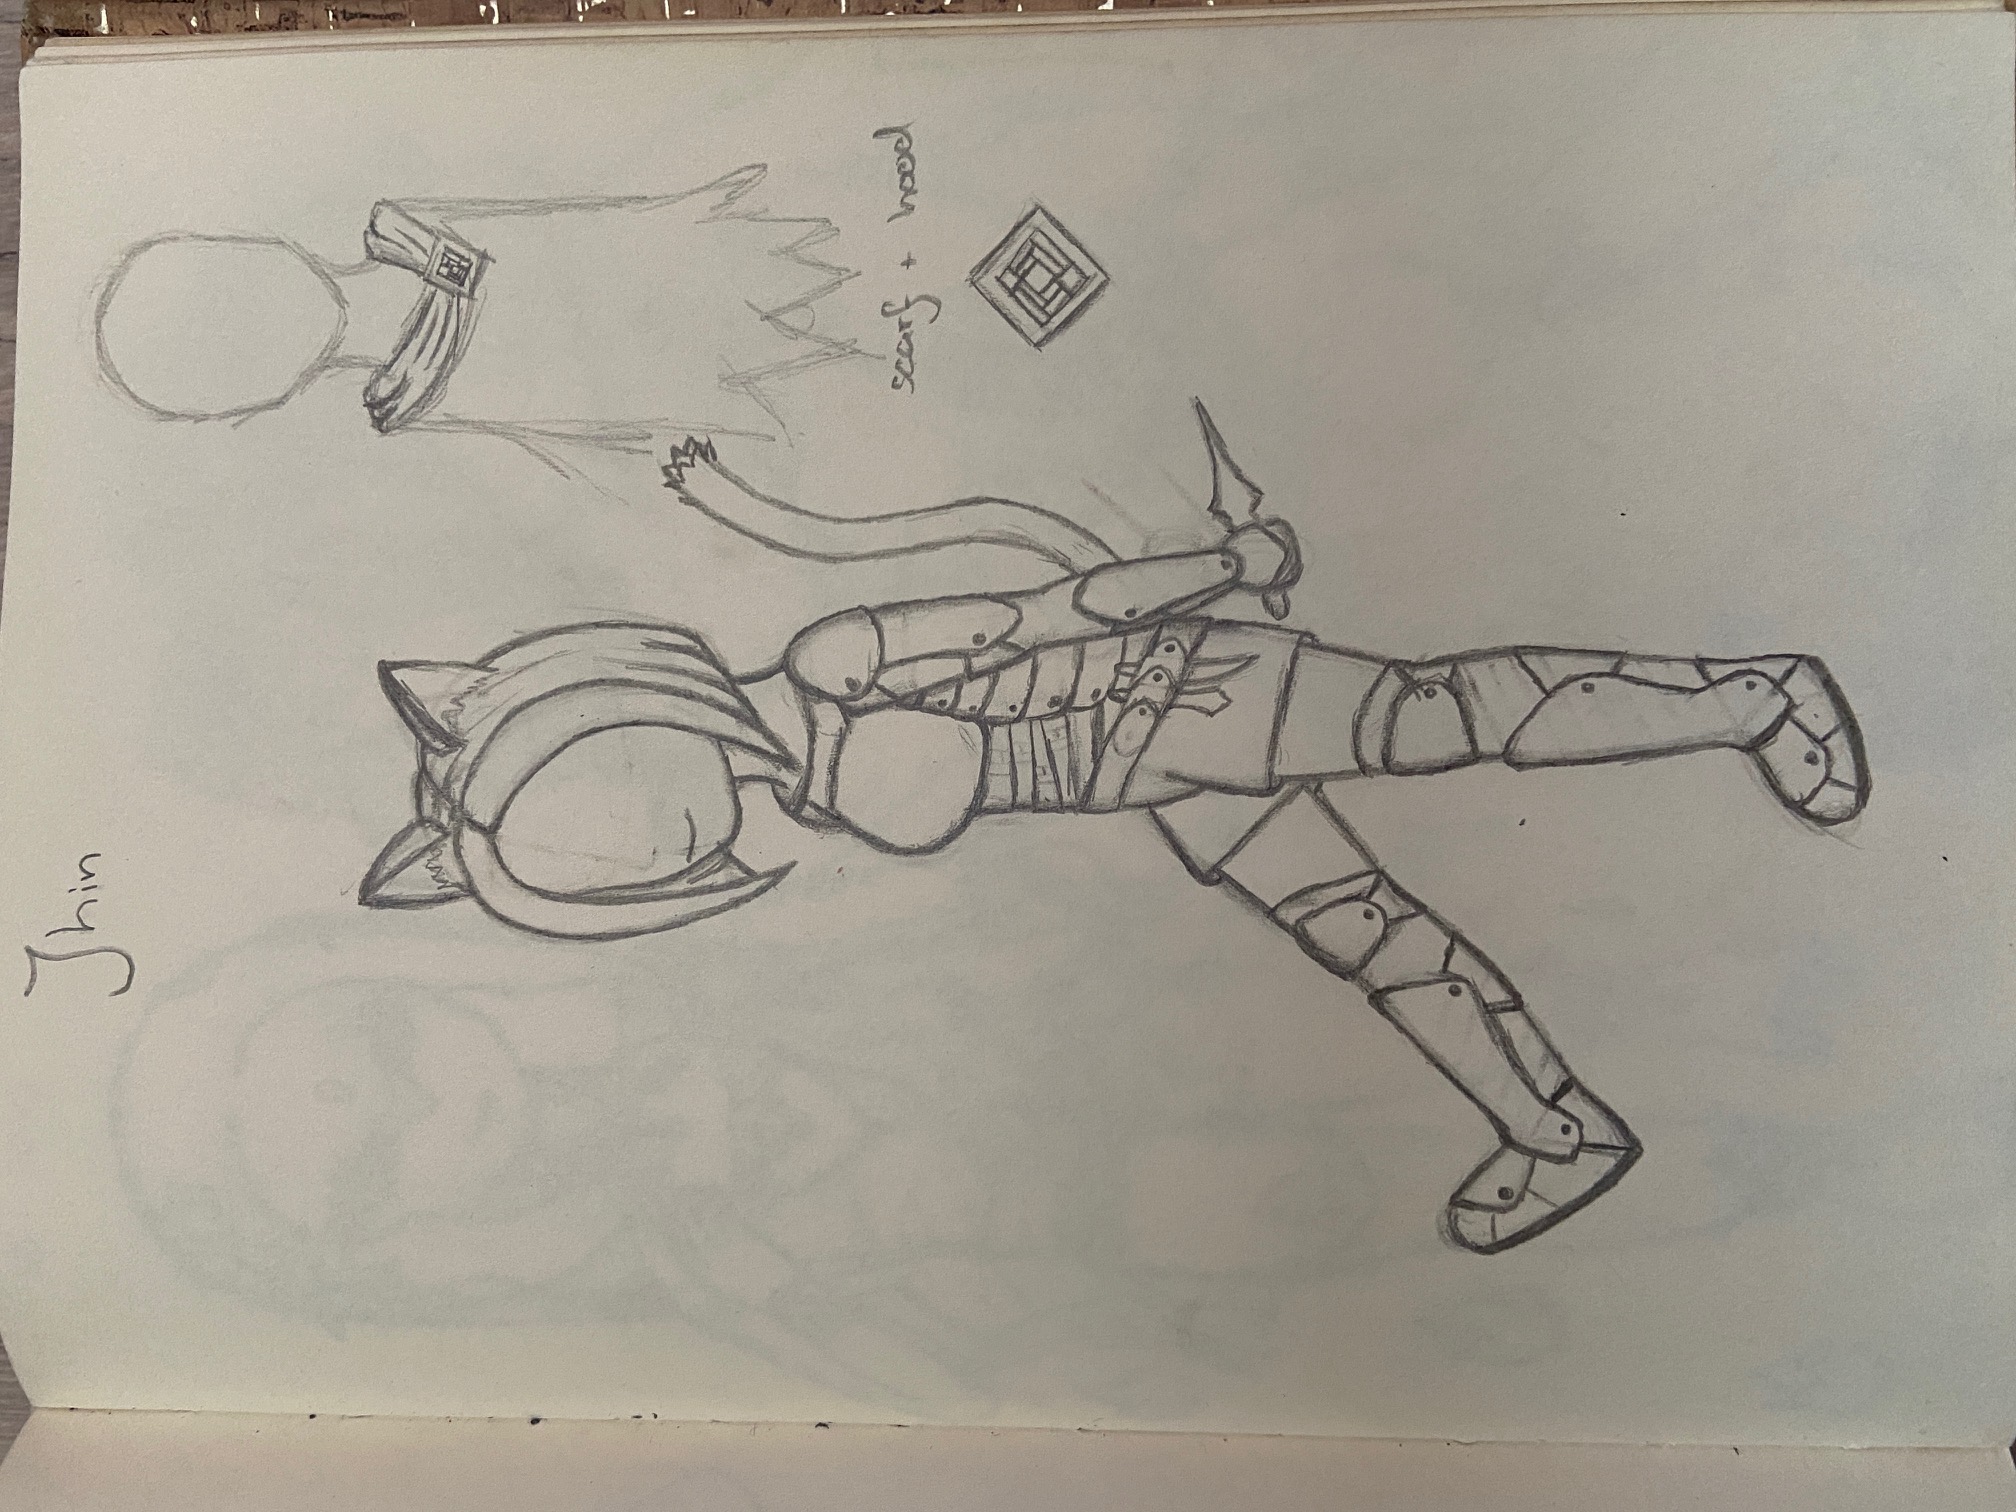 Jhin
scarf + hood